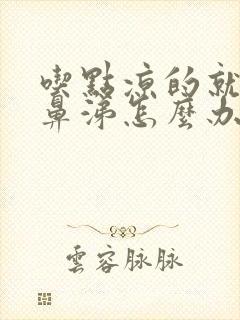 喫點涼的就
鼻涕怎麼办
雲容脉脉